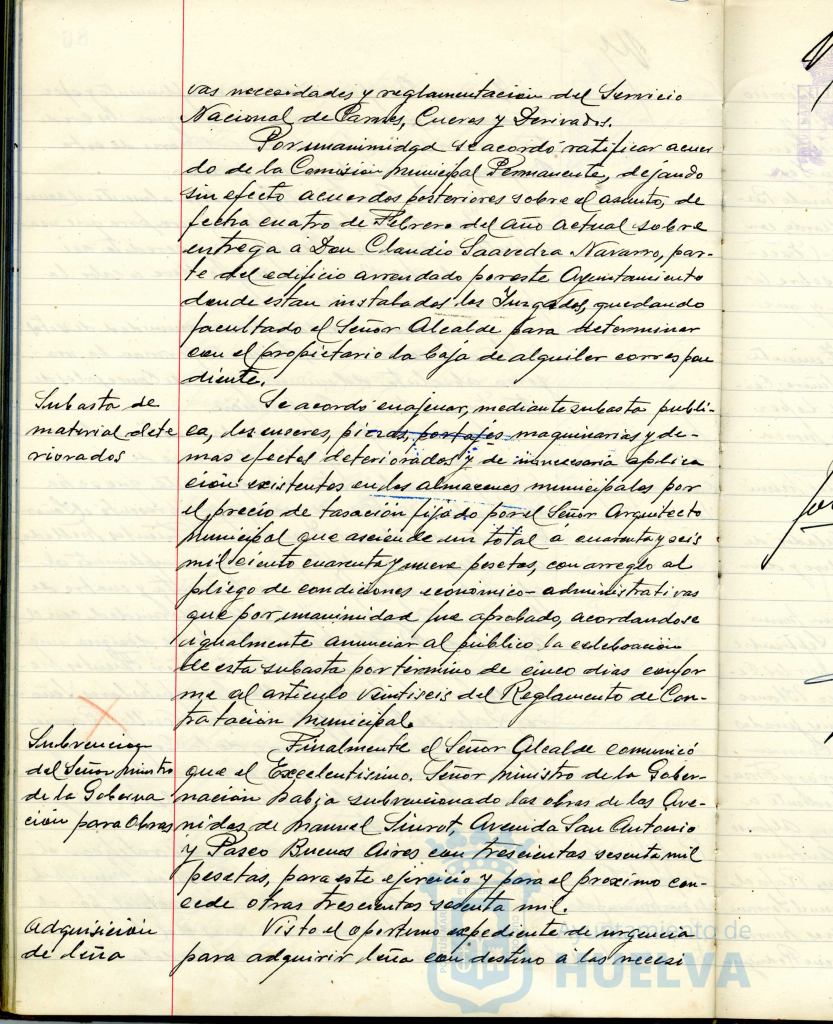 vas necesidades y reglamentación del Servicio
Nacional de Carnes, Cueros y Derivados.
Por unanimidad se acordó ratificar acuer
do de la Comisión Municipal Permanente, dejando
sin efecto acuerdos posteriores sobre el asunto, de
fecha cuatro de Febrero del año actual sobre
entrega á Don Claudio Saavedra Navarro, par-
te del edificio arrendado por este Ayuntamiento
donde estan instalados los Juzgados, quedando
facultado el Señor Alcalde para determinar
con el propietario la baja de alquiler correspon
diente.
Subasta de
material dete
riorados
Se acordó enajenar, mediante subasta públi-
ca, los enseres, maquinarias y de-
mas efectos deteriorados y de innecesaria aplica
ción existentes en los almacenes municipales por
el precio de tasación fijado por el Señor Arquitecto
Municipal que asciende un total á cuarenta y seis
mil ciento cuarenta y nueve pesetas, con arreglo al
pliego de condiciones económico-administrativas
que por unanimidad fue aprobado, acordandose
igualmente anunciar al público la celebración
de esta subasta por término de cinco dias confor
me al articulo veintiseis del Reglamento de Con-
tratación Municipal.
Subvencion
del Señor Ministro
de la Goberna
ción para Obras
Finalmente el Señor Alcalde comunicó
que el Excelentisimo. Señor Ministro de la Gober-
nación habia subvencionado las obras de las Ave-
nidas de Manuel Siurot, Avenida San Antonio
y Paseo Buenos Aires con trescientas sesenta mil
pesetas, para este ejercicio y para el proximo con-
cede otras trescientas sesenta mil.
Adquisición
de leña
Visto el oportuno expediente de urgencia
para adquirir leña con destino á las necesi
Ayuntamiento de
HUELVA